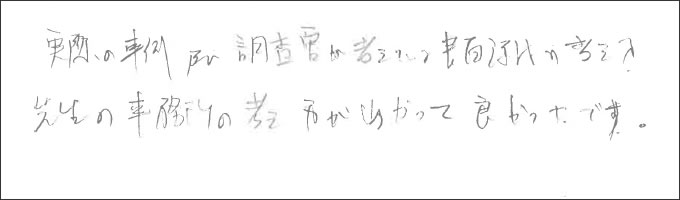 実際の事例及び調査官が考えている 考え方
先生の事務所の考え方が分かって良かったです。